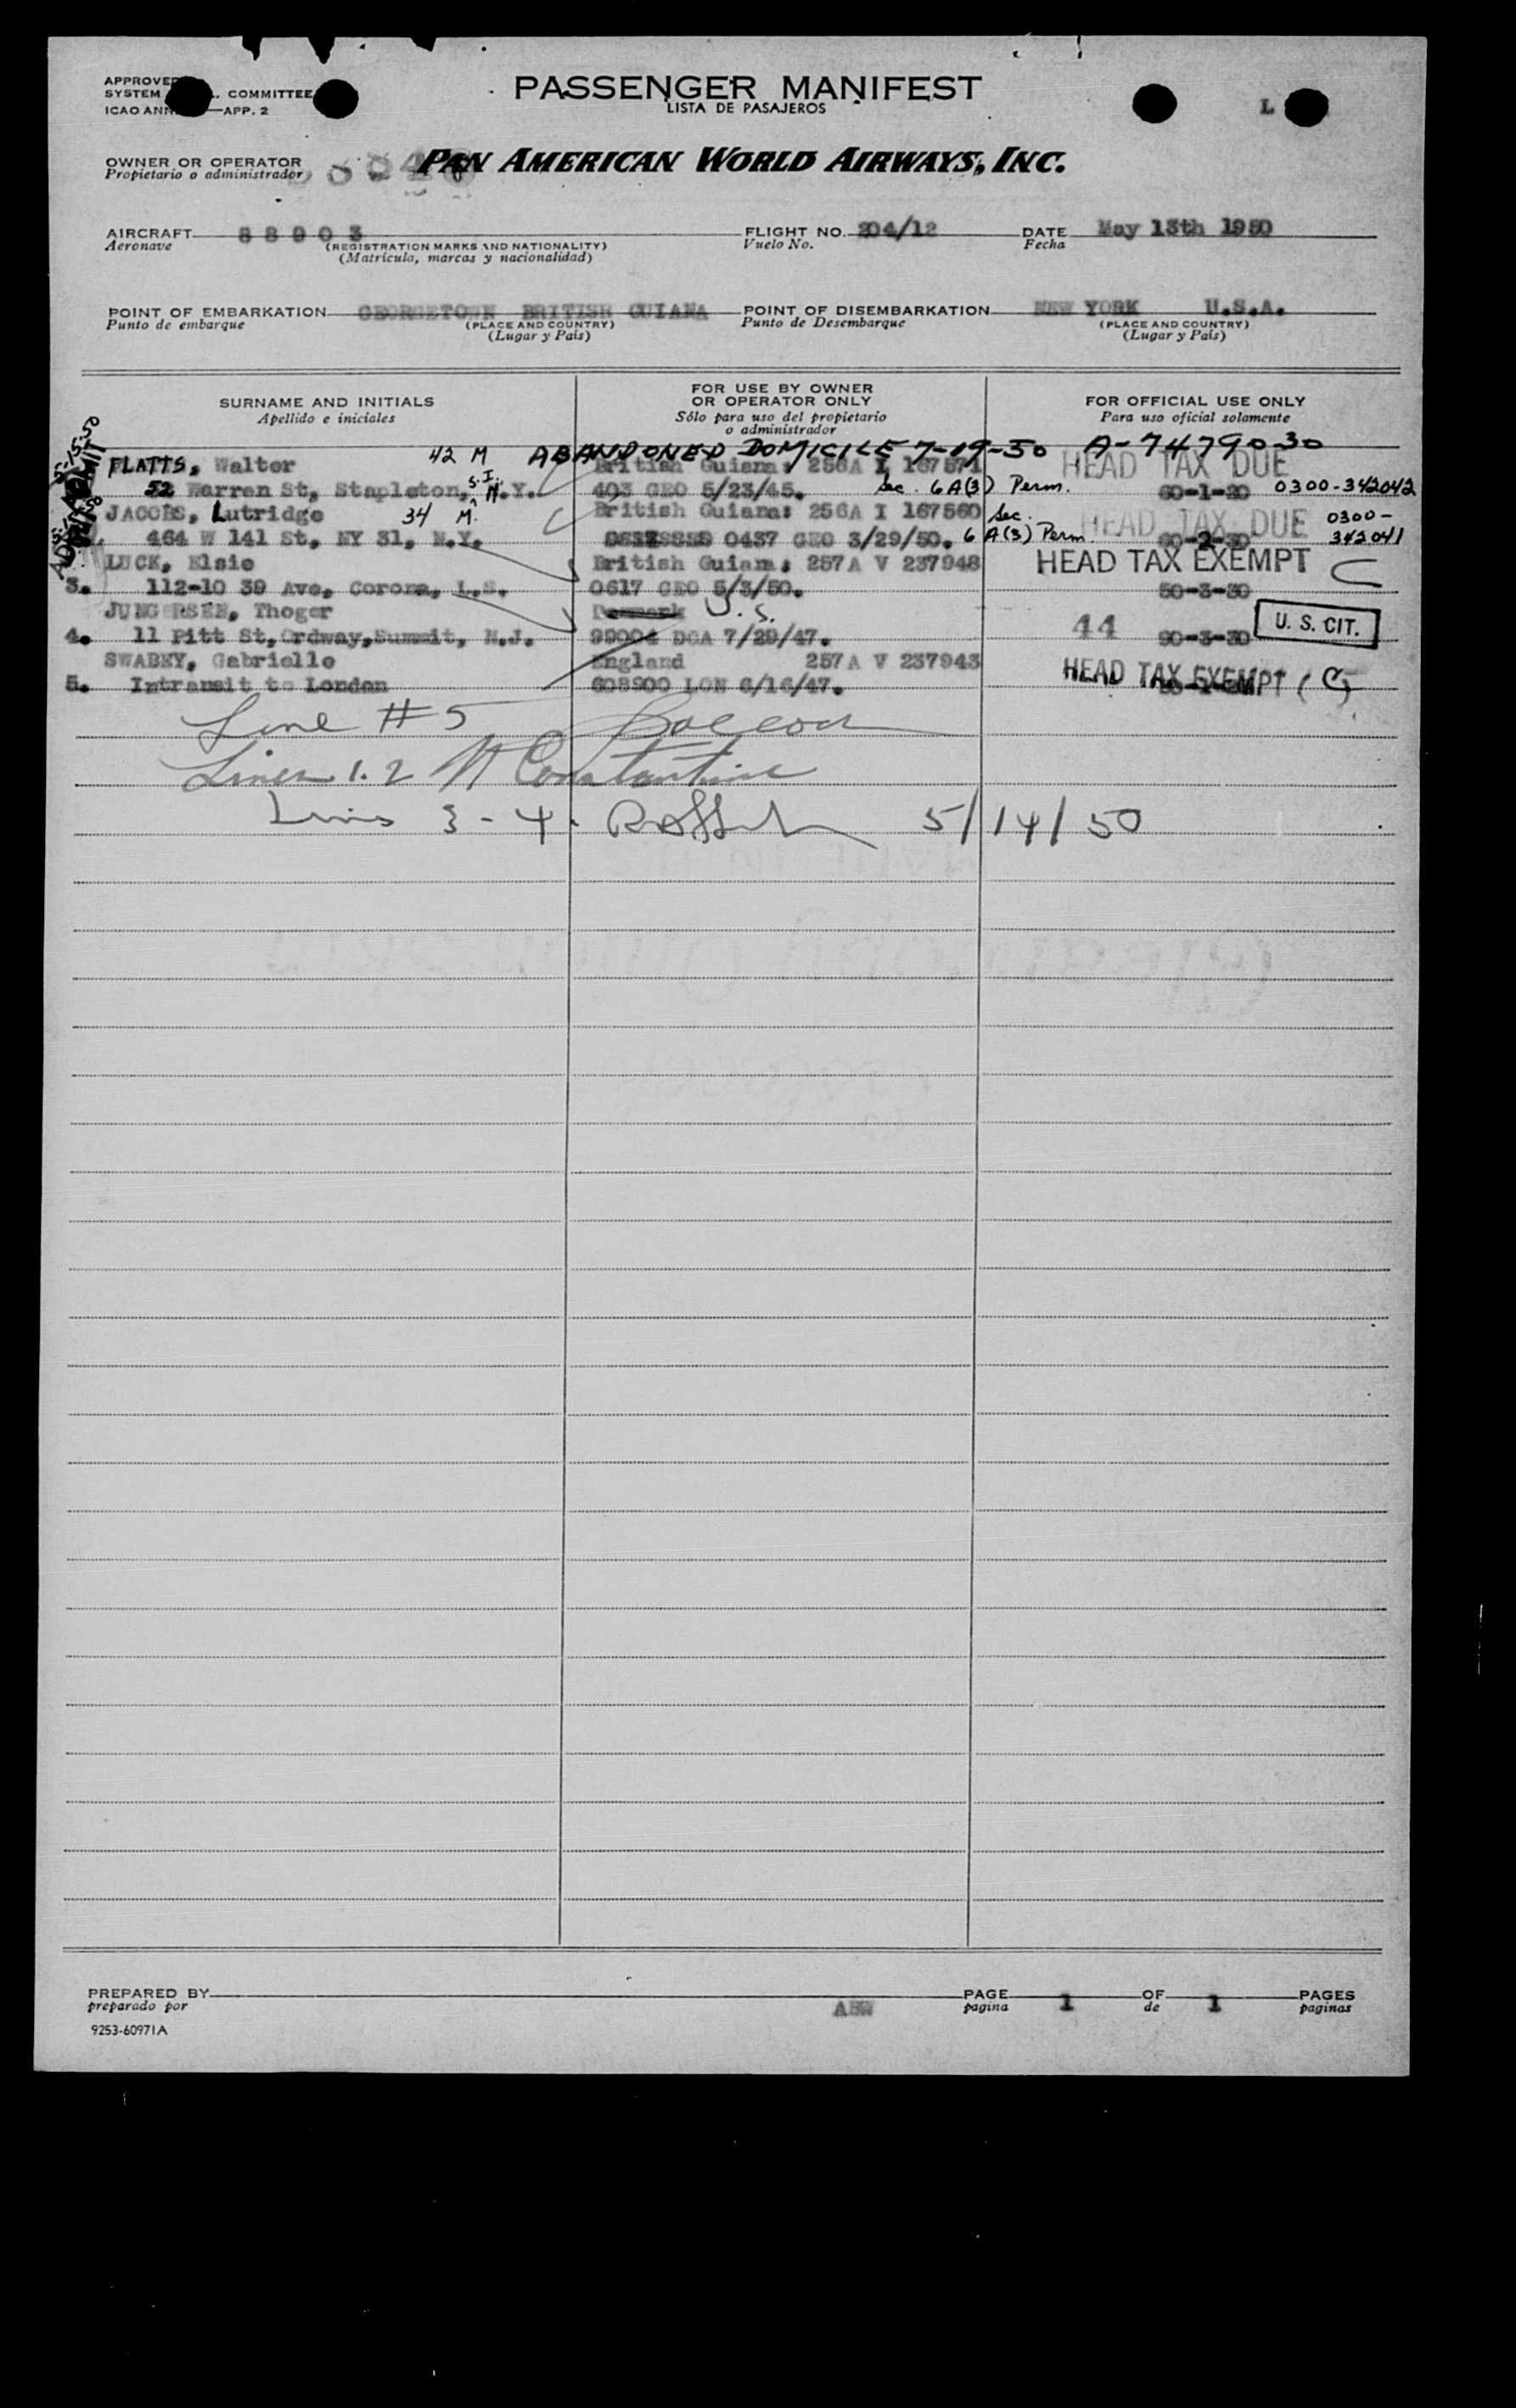 APPROVED
SYSTEM COMMITTEE
ICAO ANN —APP. 2
PASSENGER MANIFEST
LISTA DE PASAJEROS
L
OWNER OR OPERATOR
Propietario o administrador
PAN AMERICAN WORLD AIRWAYS, INC.
AIRCRAFT 88903 FLIGHT NO. 204/12 DATE May 13th 1950
Aeronave (REGISTRATION MARKS AND NATIONALITY) Vuelo No. Fecha
(Matrícula, marcas y nacionalidad)
POINT OF EMBARKATION GEORGETOWN BRITISH GUIANA POINT OF DISEMBARKATION NEW YORK U.S.A.
Punto de embarque (PLACE AND COUNTRY) Punto de Desembarque (PLACE AND COUNTRY)
(Lugar y País) (Lugar y País)
SURNAME AND INITIALS
Apellido e iniciales
FOR USE BY OWNER
OR OPERATOR ONLY
Sólo para uso del propietario
o administrador
FOR OFFICIAL USE ONLY
Para uso oficial solamente
ABANDONED DOMICILE 7-19-50 A-7479030
PLATTS, Walter 42 M British Guiana: 256A I 167571 HEAD TAX DUE
52 Warren St, Stapleton, S.I. N.Y. 403 GEO 5/23/45. Sec. 6A(3) Perm. 60-1-20 0300-342042
JACOBS, Lutridge 34 M. British Guiana: 256A I 167560 Sec. HEAD TAX DUE 0300-
464 W 141 St, NY 31, N.Y. 0437 GEO 3/29/50. 6 A(3) Perm. 60-2-30 342041
LUCK, Elsie British Guiana: 257A V 237948 HEAD TAX EXEMPT
3. 112-10 39 Ave, Corona, L.S. 0617 GEO 5/3/50. 50-3-30
JUNGERSEN, Thoger Denmark U.S.
4. 11 Pitt St, Ordway, Summit, N.J. 99004 DCA 7/29/47. 44 90-3-30 U. S. CIT.
SWABEY, Gabrielle England 257A V 237943
5. Intransit to London 608900 LON 6/16/47. HEAD TAX EXEMPT
Line #5
Lines 1.2 Constantine
Lines 3-4. 5/14/50
PREPARED BY ABW PAGE 1 OF 1 PAGES
preparado por pagina de paginas
9253-60971A